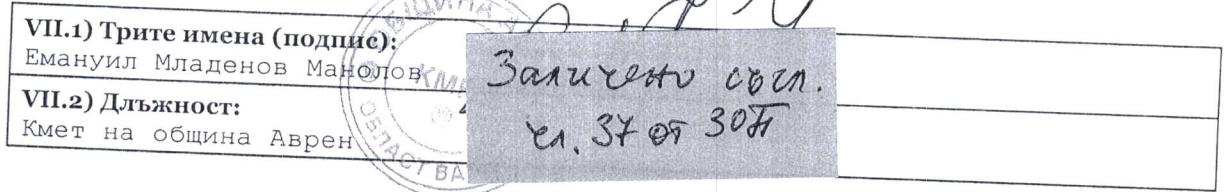 VII.1) Трите имена (подпис):
Емануил Младенов Манолов
VII.2) Длъжност:
Кмет на община Аврен
Заличено съгл.
чл. 37 от ЗОП
ОБЩИНА А
КМ
ОБЛАСТ ВА